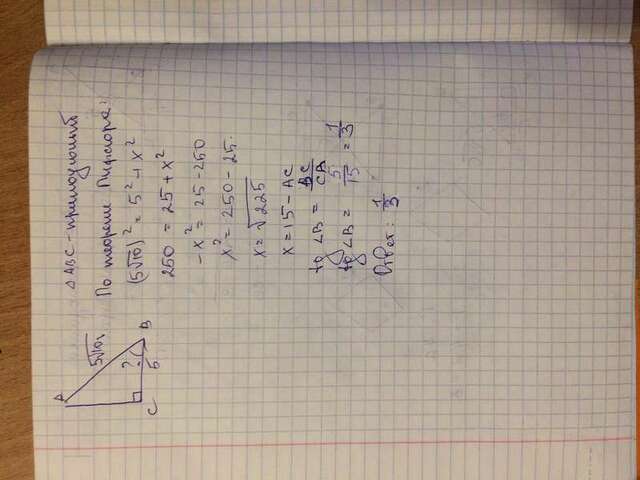 △ABC - прямоугольный
По теореме Пифагора:
(5√10)² = 5² + x²
250 = 25 + x²
-x² = 25 - 250
x² = 250 - 25.
x = √225
x = 15 - AC
tg ∠B = BC/CB
tg ∠B = 5/15 = 1/3
Ответ: 1/3
A
5√10
?
B
C
5